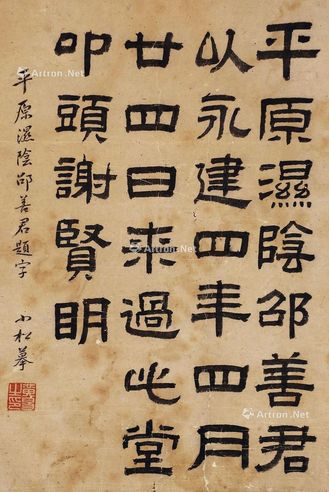 平原濕陰邵善君
以永建四年四月
廿四日来過此堂
叩頭謝賢明
平原濕陰邵善君題字 小松摹
Artron.Net
Artron.Net
Artron.Net
Artron.Net